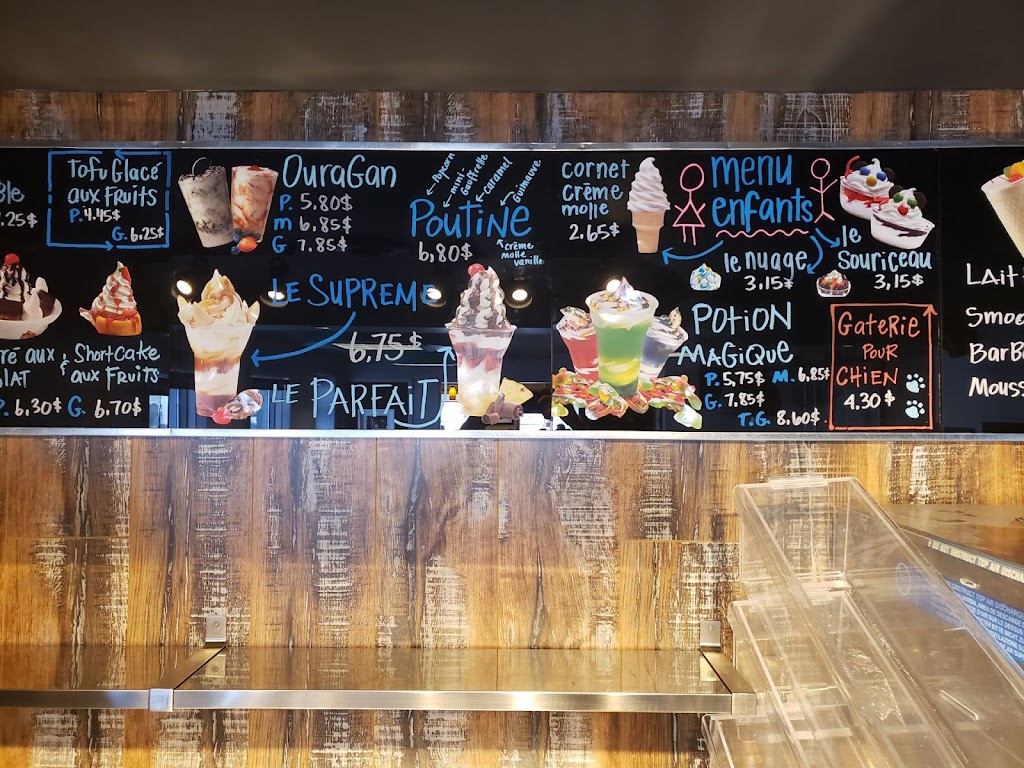 ble
.25$
Tofu Glacé
aux Fruits
P. 4.45$
G. 6.25$
OuraGan
P. 5.80$
m 6.85$
G 7.85$
Popcorn
mini-
Gauffrette
Caramel
Guimauve
Poutine
6,80$
crème
molle
vanille
cornet
crème
molle
2.65$
menu
enfants
le nuage
3,15$
le
Souriceau
3,15$
ré aux
lat
P. 6.30$
Shortcake
aux Fruits
G. 6,70$
Le Supreme
6,75$
Le Parfait
Potion
Magique
P. 5,75$ M. 6,85$
G. 7,85$
T.G. 8,60$
GateRie
Pour
Chien
4.30$
Lait
Smoo
BarB
Mouss